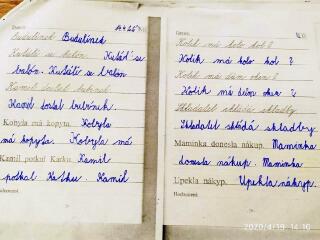 Datum:
Budulínek Budulínek
Kutálí se balón. Kutálí se
balón. Kutálí se balón
Kamil dostal bubínek.
Kamil dostal bubínek.
Kobyla má kopyta. Kobyla
má kopyta. Kobyla má
Kamil potkal Katku. Kamil
potkal Katku. Kamil
Hodnocení:
Datum:
Kolik má kolo kol?
Kolik má kolo kol ?
Kolik má dům oken?
Kolik má dům oken ?
Skladatel skládá skladby.
Skladatel skládá skladby.
Maminka donesla nákup. Maminka
donesla nákup. Maminka
Upekla nákyp. Upekla nákyp.
Hodnocení:
2020/4/19 14:16